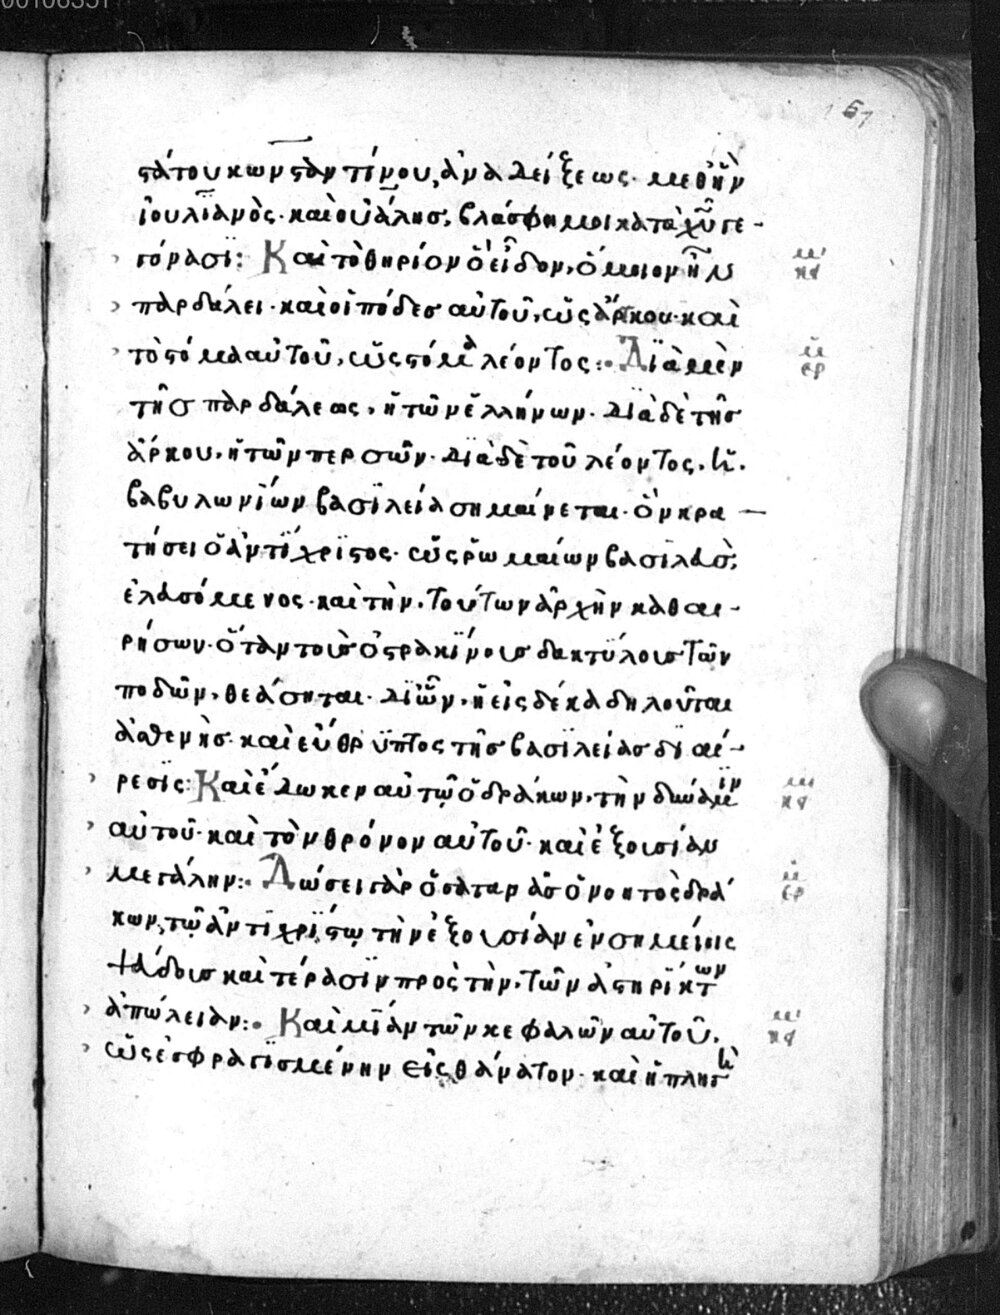 00106351
157
στάτου κωνσταντίνου, ἀναδείξεως· μεθ ἣν
ἰουλϊανὸς· καὶ οὐάλης, βλάσφημοι κατὰ χ̅υ̅ γε-
γόνασϊ: Καὶ τὸ θηρίον ὃ εἶδον, ὅμοιον ἦν
μ κ
παρδάλει· καὶ οἱ πόδες αὐτοῦ, ὡς ἄρκου· καὶ
τὸ στόμα αὐτοῦ, ὡς στόμα λέοντος:· Δϊὰ μὲν
ερ
τῆς παρδάλεως, ἡ τῶν ἑλλήνων· δϊὰ δὲ τῆς
ἄρκου, ἡ τῶν περσῶν· δϊὰ δὲ τοῦ λέοντος, ἡ.
βαβυλωνϊων βασϊλεία σημαίνεται· ὧν κρα-
τήσει ὁ ἀντϊχριστος· ὡς ῥωμαίων βασιλεὺς,
ἐλασόμενος· καὶ τὴν τούτων ἀρχὴν καθαι-
ρήσων· ὅταν τοὺς ὀστρακϊνους δακτύλους τῶν
ποδῶν, θεάσηται· δϊ ὧν, ἡ εἰς δέκα δηλοῦται
ἀσθενὴς· καὶ εὔθρϋπτος τῆς βασϊλείας δϊαί-
ρεσϊς: Καὶ ἔδωκεν αὐτῷ ὁ δράκων, τὴν δύναμϊν
αὐτοῦ· καὶ τὸν θρόνον αὐτοῦ· καὶ ἐξουσίαν
μεγάλην:· Δώσει γὰρ ὁ σατανᾶς ὁ νοητὸς δρά
ερ
κων, τῷ ἀντϊχρϊστῳ τὴν ἐξουσίαν ἐν σημείοις
ψεύδους καὶ τέρασϊν πρὸς τὴν, τῶν ἀστηρϊκτων
ἀπώλειαν:· Καὶ μϊαν τῶν κεφαλῶν αὐτοῦ,
ὡς ἐσφραγϊσμένην εἰς θάνατον· καὶ ἡ πληγὴ